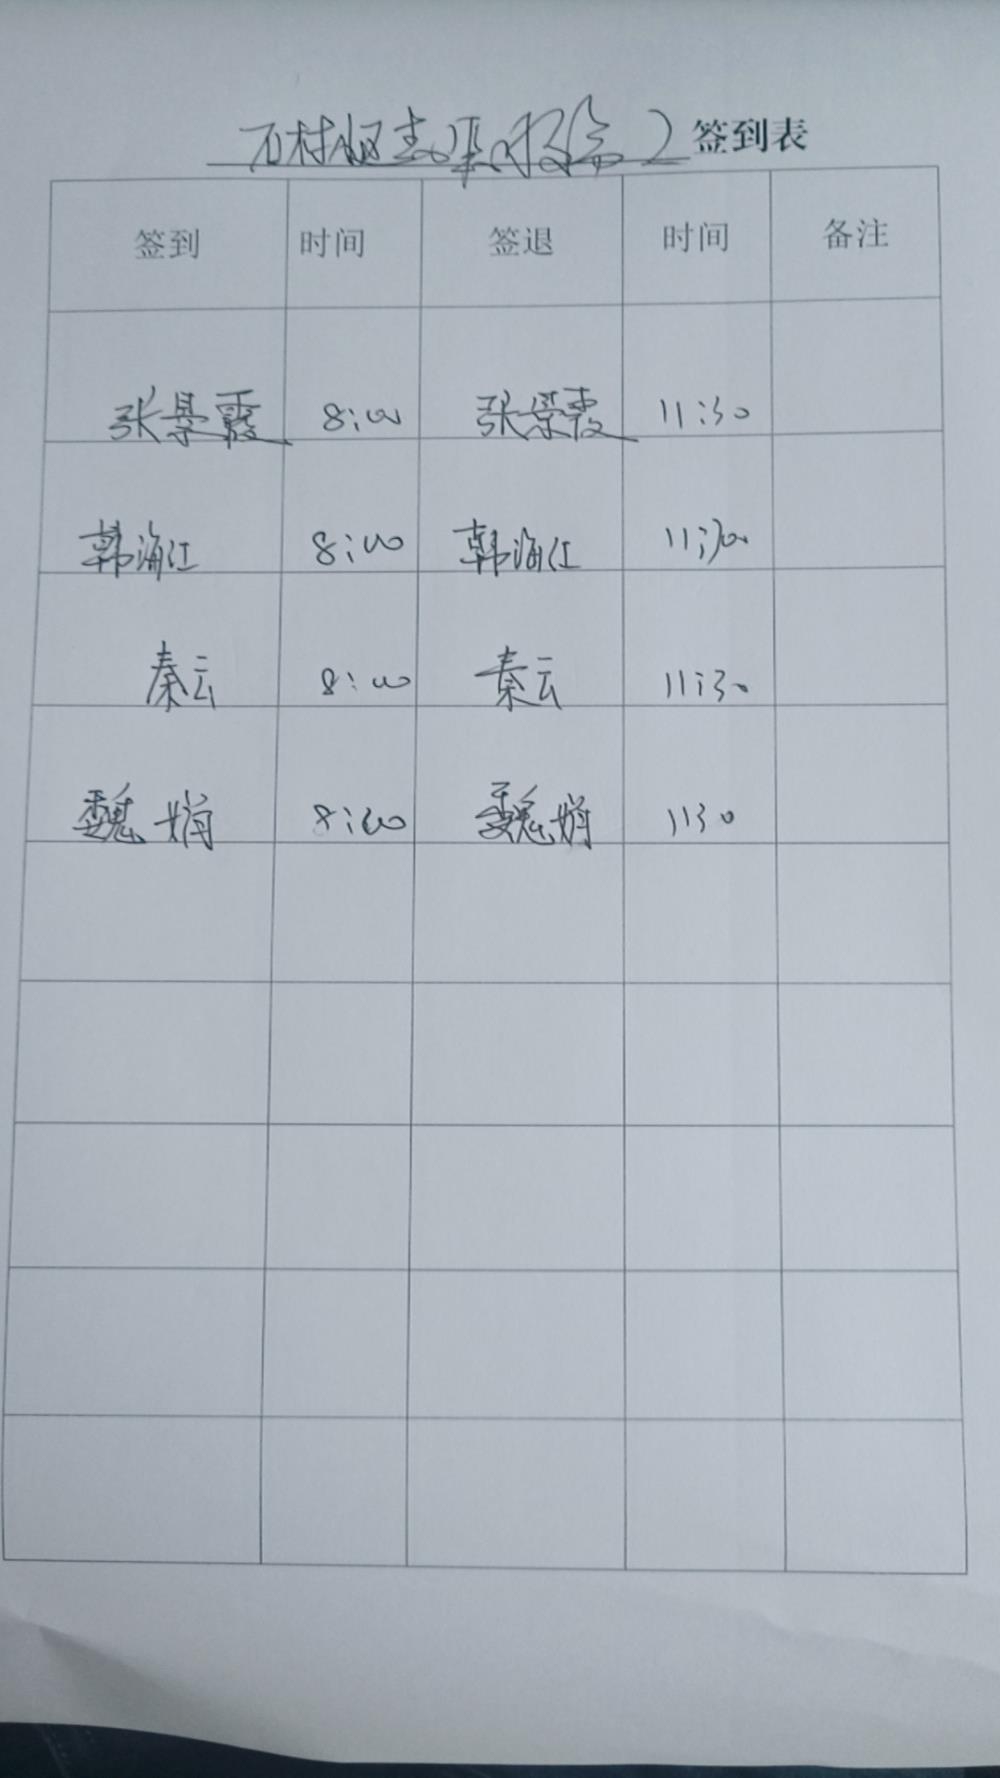 石村 签到表
签到 时间 签退 时间 备注
张景霞 8:00 张景霞 11:30
韩海江 8:00 韩海江 11:30
秦云 8:00 秦云 11:30
魏娟 8:00 魏娟 1130